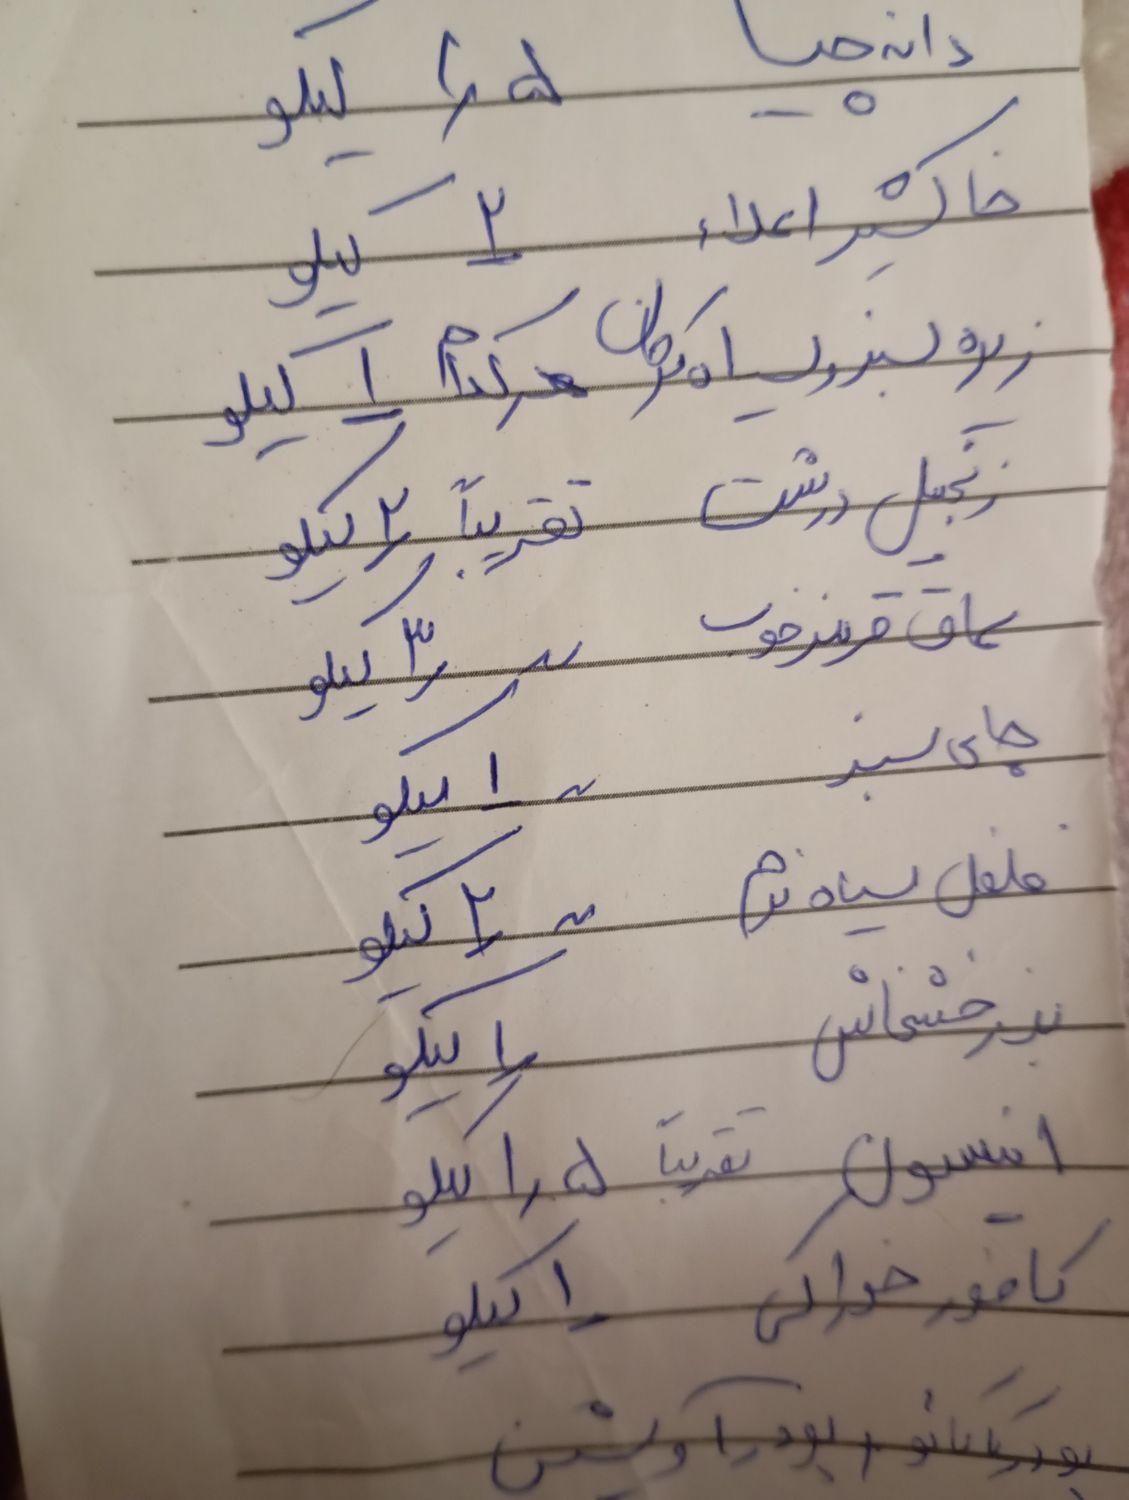 دانه چیا ۱/۵ کیلو
خاکشیر اعلاء ۲ کیلو
زیره سبز و سیاه کرمان هرکدام ۱ کیلو
زنجبیل درشت تقریباً ۲ کیلو
سماق قرمز خوب ~ ۳ کیلو
چای سبز ~ ۱ کیلو
فلفل سیاه نرم ~ ۲ کیلو
بذر خشخاش ۱ کیلو
انیسون تقریباً ۱/۵ کیلو
کافور خوراکی ۱ کیلو
پودر کاکائو، پودر آویشن